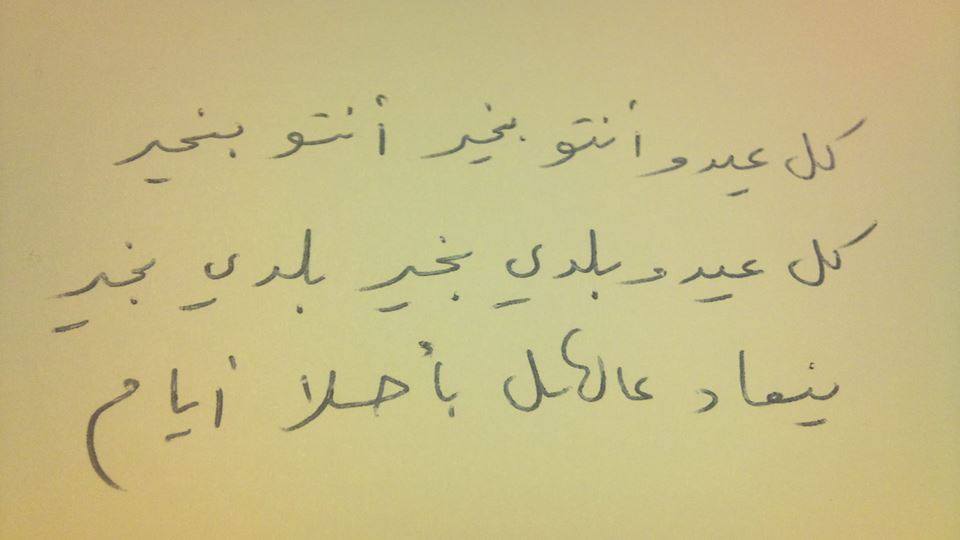 كل عيد وأنتو بخير أنتو بخير
كل عيد وبلدي بخير بلدي بخير
ينعاد عالهل بأحلا أيام